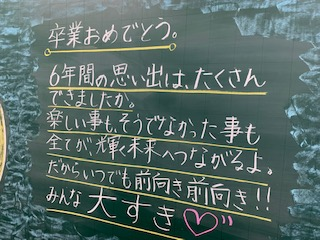 卒業おめでとう。
6年間の思い出は、たくさん
できましたか。
楽しい事も、そうでなかった事も
全てが、輝く未来へつながるよ。
だからいつでも前向き前向き!!
みんな大すき♡